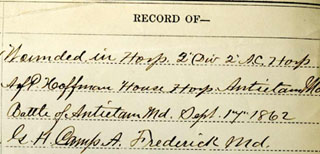 RECORD OF—
Wounded in Hosp. 2" Div 2" A.C. Hosp
A of P. Hoffman House Hosp Antietam Md
Battle of Antietam Md. Sept. 17" 1862
G. H. Camp A. Frederick Md.